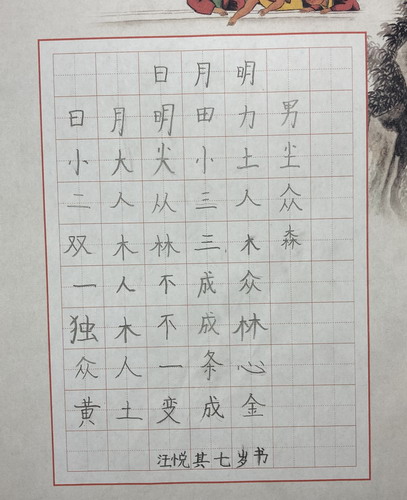 日月明
日月明田力男
小大尖小土尘
二人从三人众
双木林三木森
一人不成众
独木不成林
众人一条心
黄土变成金
汪悦其七岁书